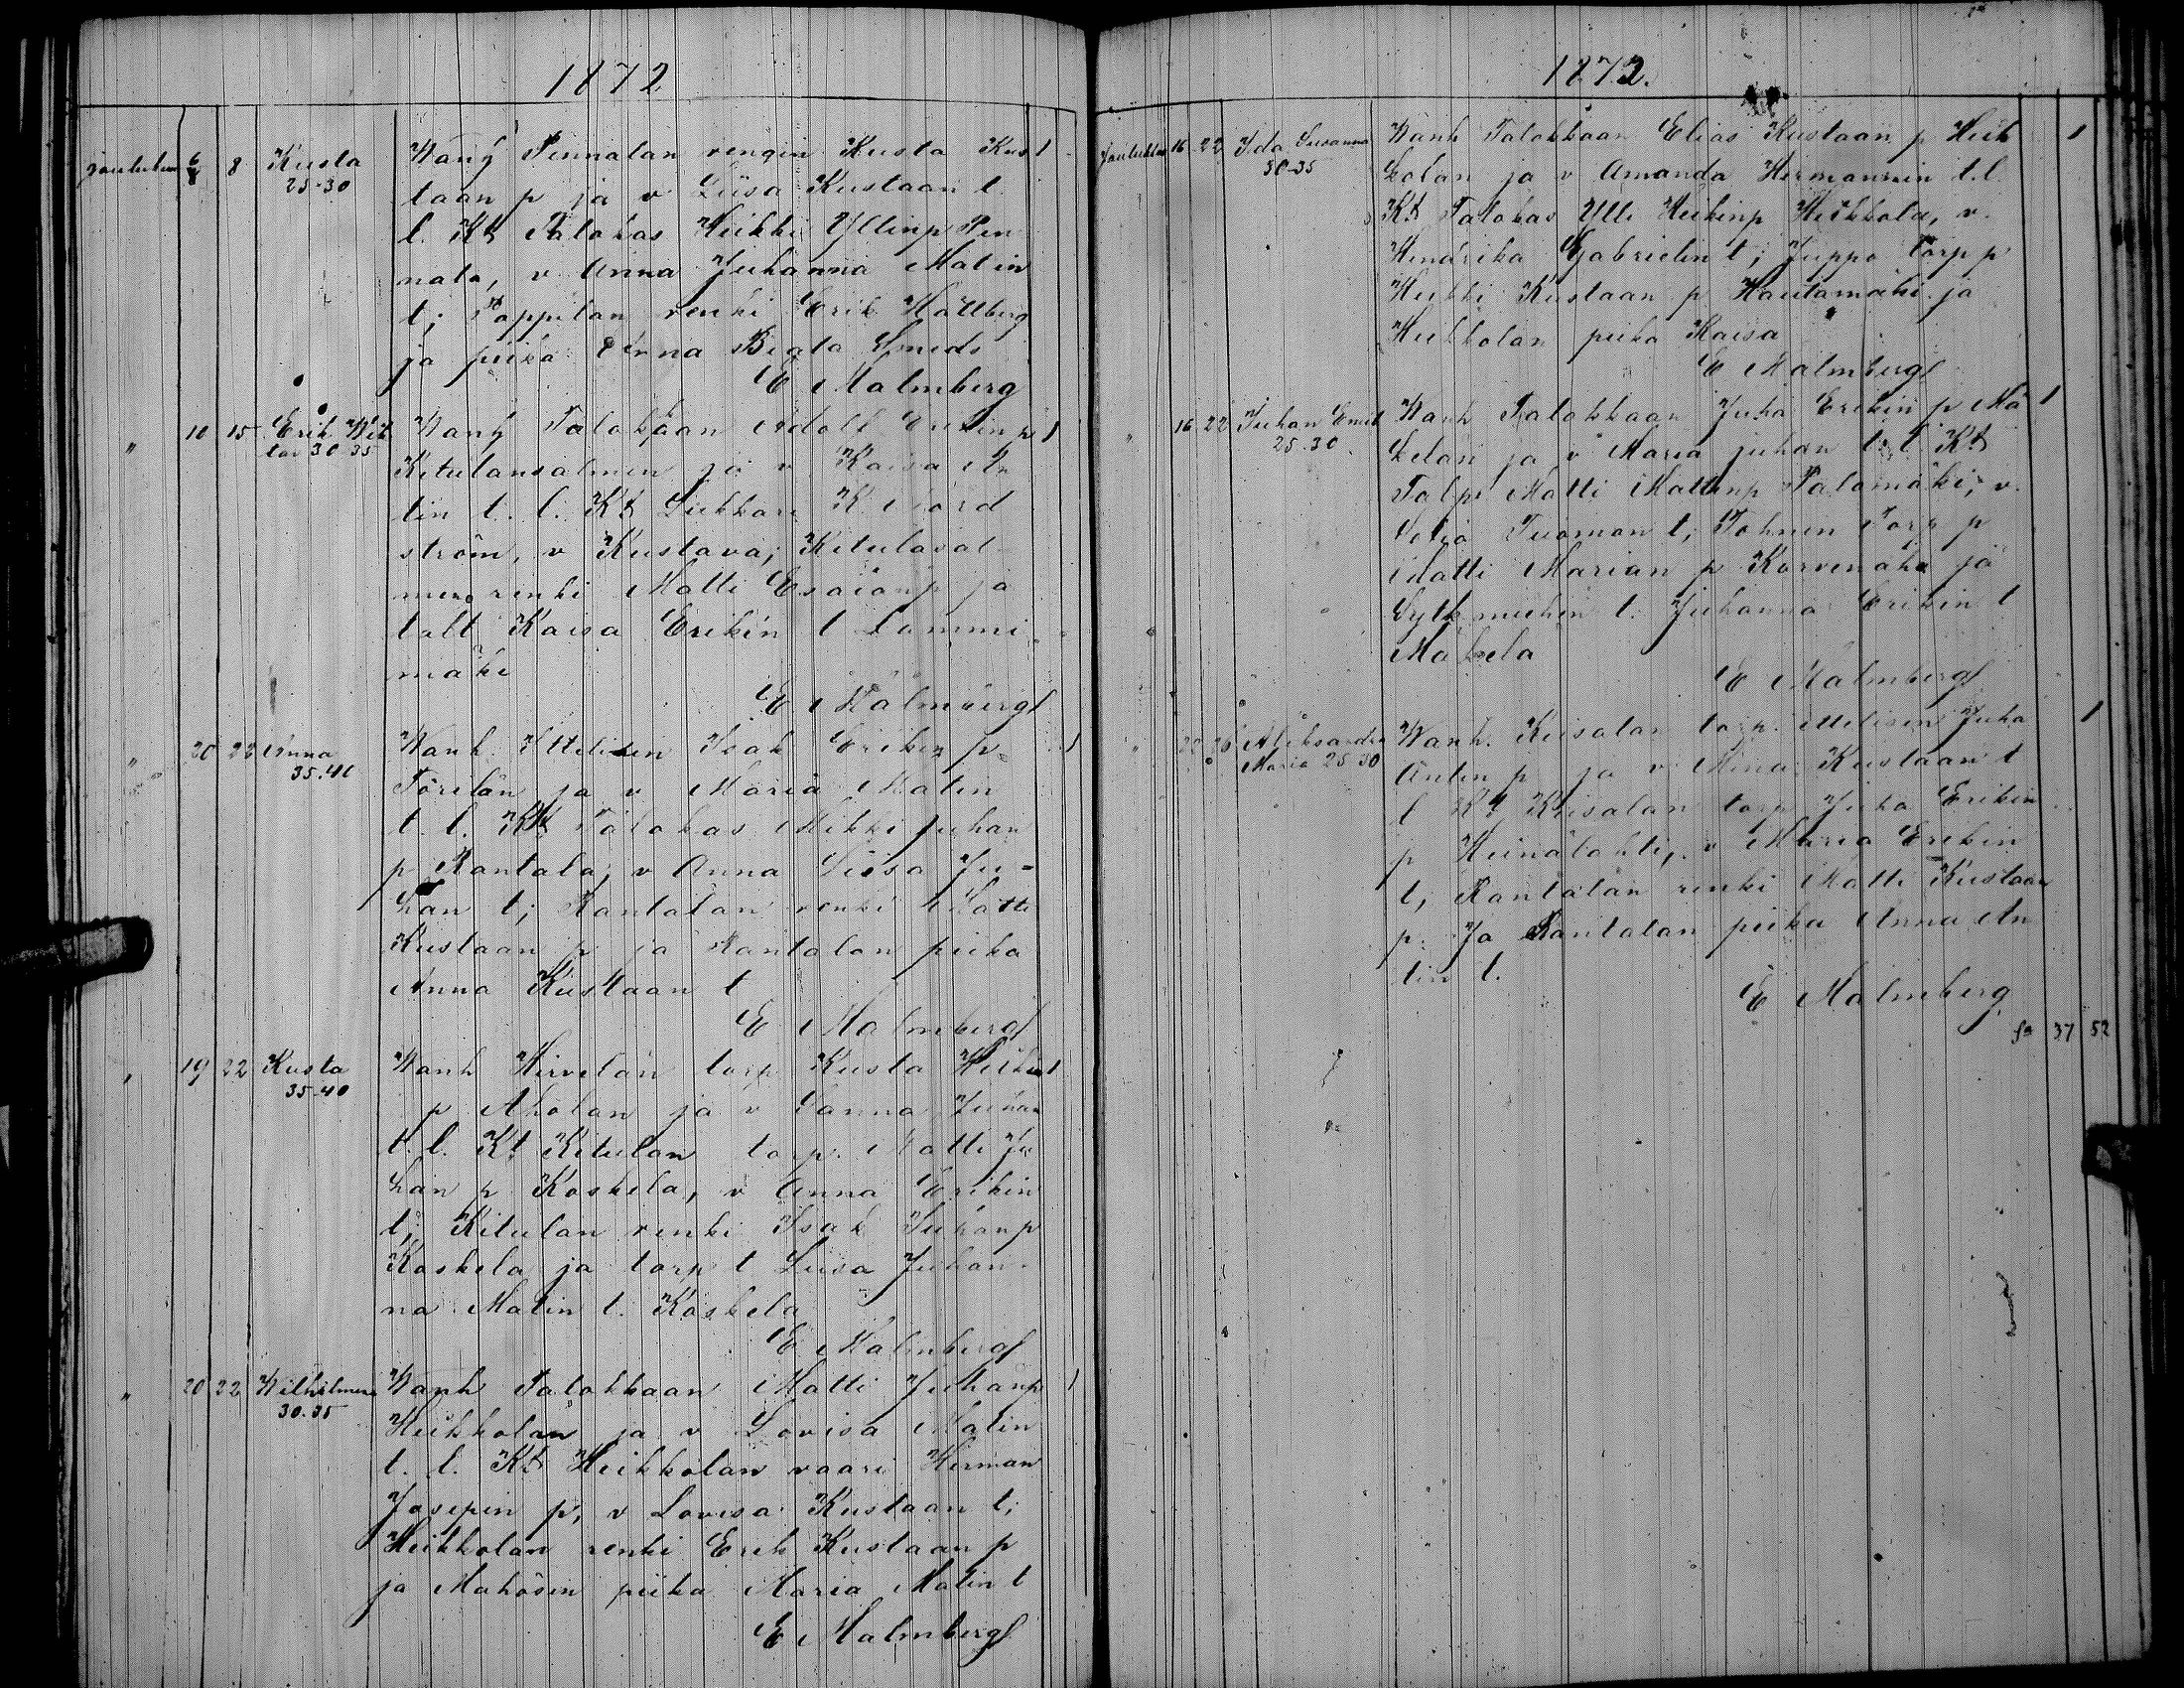 1872
joulukuu 6 8 Kusta Wanh Pennalan rengin Kusta Kus 1
25-30 taan p ja v Liisa Kustaan t.
l. Kt Talokas Heikki Yllinp Pen
nala, v Anna Juhanna Matin
t; Pappilan renki Erik Hallberg
ja piika Anna Beata Smeds
E Malmberg
" 10 15 Erik Wik Wanh Talokkaan Adolf Erikin p 1
tor 30 35 Kitulansalmen ja v Kaisa An
tin t. l. Kt Lukkari K. Nord
ström, v Kustava; Kitulasal
men renki Matti Esaianp ja
talt Kaisa Erikin t Lammi
mäki
E Malmberg
" 20 22 Anna Wanh Itsellisen Isak Erikin p 1
35.40 Törilän ja v Maria Matin
t. l. Kt Talokas Mikki Juhan
p Rantala; v Anna Liisa Ju=
han t; Rantalan renki Matti
Kustaan p ja Rantalan piika
Anna Kustaan t
E Malmberg
" 19 22 Kusta Wanh Hirvelän torp Kusta Heikin 1
35-40 p Aholan ja v Sanna Juhan
t. l. Kt Kitulan torp. Matti Ju
han p Koskela, v Anna Erikin
t; Kitulan renki Isak Juhan p
Koskela ja torp t Liisa Juhan
na Matin t. Koskela
E Malmberg
" 20 22 Wilhelmina Wanh Talokkaan Matti Juhanp 1
30.35 Heikkolan ja v Lovisa Matin
t. l. Kt Heikkolan vaari Herman
Josepin p, v Lovisa Kustaan t;
Heikkolan renki Erik Kustaan p
ja Mahösen piika Maria Matin t
E Malmberg
1872.
Jouluklu 16 22 Ida Susanna Wanh Talokkaan Elias Kustaan p Heik 1
30-35 kolan ja v Amanda Hermannin t. l.
Kt Talokas Ylli Heikinp Heikkola, v.
Hendrika Gabrielin t; Juppo torp p
Heikki Kustaan p Hautamäki ja
Heikkolan piika Kaisa
E Malmberg
" 16 22 Juhan Emil Wanh Talokkaan Juha Erikin p Mä 1
25.30. kelan ja v Maria Juhan t. l. Kt
Talp Matti Mattinp Palomäki; v.
Tuoman t; Torp p
Matti Marian p Korvenaho ja
t. Juhanna Erikin t
Mäkelä
E Malmberg
" 26 Aleksandra Wanh. Keisalan torp. Juha 1
Maria 25 30 Antin p ja v Miina Kustaan t
l Kt Keisalan torp Juha Erikin
p Heinälahti, v Maria Erikin
t, Rantalan renki Matti Kustaan
p. Ja Rantalan piika Anna An
tin t.
E Malmberg
37 52